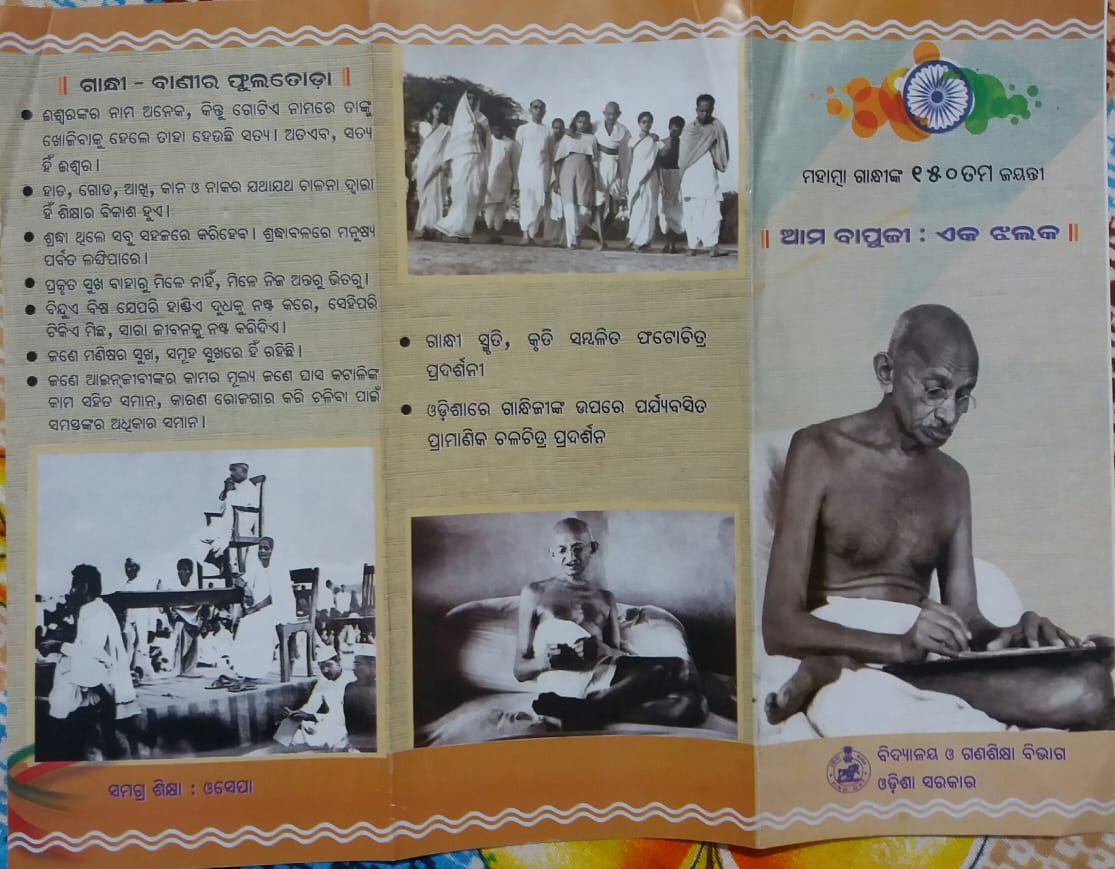 ॥ ଗାନ୍ଧୀ - ବାଣୀର ଫୁଲତୋଡ଼ା ॥
● ଈଶ୍ୱରଙ୍କର ନାମ ଅନେକ, କିନ୍ତୁ ଗୋଟିଏ ନାମରେ ତାଙ୍କୁ
ଖୋଜିବାକୁ ହେଲେ ତାହା ହେଉଛି ସତ୍ୟ। ଅତଏବ, ସତ୍ୟ
ହିଁ ଈଶ୍ୱର।
● ହାତ, ଗୋଡ, ଆଖି, କାନ ଓ ନାକର ଯଥାଯଥ ଚାଳନା ଦ୍ୱାରା
ହିଁ ଶିକ୍ଷାର ବିକାଶ ହୁଏ।
● ଶ୍ରଦ୍ଧା ଥିଲେ ସବୁ ସହଜରେ କରିହେବ। ଶ୍ରଦ୍ଧାବଳରେ ମନୁଷ୍ୟ
ପର୍ବତ ଲଙ୍ଘିପାରେ।
● ପ୍ରକୃତ ସୁଖ ବାହାରୁ ମିଳେ ନାହିଁ, ମିଳେ ନିଜ ଅନ୍ତରୁ ଭିତରୁ।
● ବିନ୍ଦୁଏ ବିଷ ଯେପରି ହାଣ୍ଡିଏ ଦୁଧକୁ ନଷ୍ଟ କରେ, ସେହିପରି
ଟିକିଏ ମିଛ, ସାରା ଜୀବନକୁ ନଷ୍ଟ କରିଦିଏ।
● ଜଣେ ମଣିଷର ସୁଖ, ସମୂହ ସୁଖରେ ହିଁ ରହିଛି।
● ଜଣେ ଆଇନ୍‌ଜୀବୀଙ୍କର କାମର ମୂଲ୍ୟ ଜଣେ ଘାସ କଟାଳିଙ୍କ
କାମ ସହିତ ସମାନ, କାରଣ ରୋଜଗାର କରି ଚଳିବା ପାଇଁ
ସମସ୍ତଙ୍କର ଅଧିକାର ସମାନ।
ସମଗ୍ର ଶିକ୍ଷା : ଓସେପା
● ଗାନ୍ଧୀ ସ୍ମୃତି, କୃତି ସମ୍ବଳିତ ଫଟୋଚିତ୍ର
ପ୍ରଦର୍ଶନୀ
● ଓଡ଼ିଶାରେ ଗାନ୍ଧିଜୀଙ୍କ ଉପରେ ପର୍ଯ୍ୟବସିତ
ପ୍ରାମାଣିକ ଚଳଚିତ୍ର ପ୍ରଦର୍ଶନ
ମହାତ୍ମା ଗାନ୍ଧୀଙ୍କ ୧୫୦ତମ ଜୟନ୍ତୀ
॥ ଆମ ବାପୁଜୀ : ଏକ ଝଲକ ॥
ବିଦ୍ୟାଳୟ ଓ ଗଣଶିକ୍ଷା ବିଭାଗ
ଓଡ଼ିଶା ସରକାର